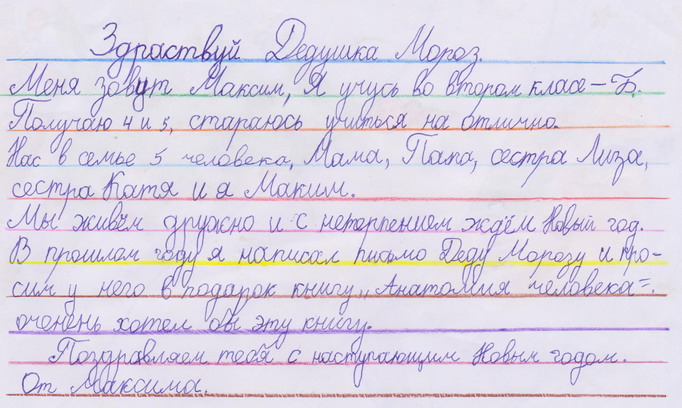 Здраствуй Дедушка Мороз.
Меня зовут Максим, Я учусь во втором класе – Б.
Получаю 4 и 5, стараюсь учиться на отлично.
Нас в семье 5 человека, Мама, Папа, сестра Лиза,
сестра Катя и я Маким.
Мы живём дружно и с нетерпением ждём Новый год.
В прошлом году я написал письмо Деду Морозу и про-
сим у него в подарок книгу „Анатомия человека".
очень хотел бы эту книгу.
Поздравляем тебя с наступающим Новым годом.
От Максима.